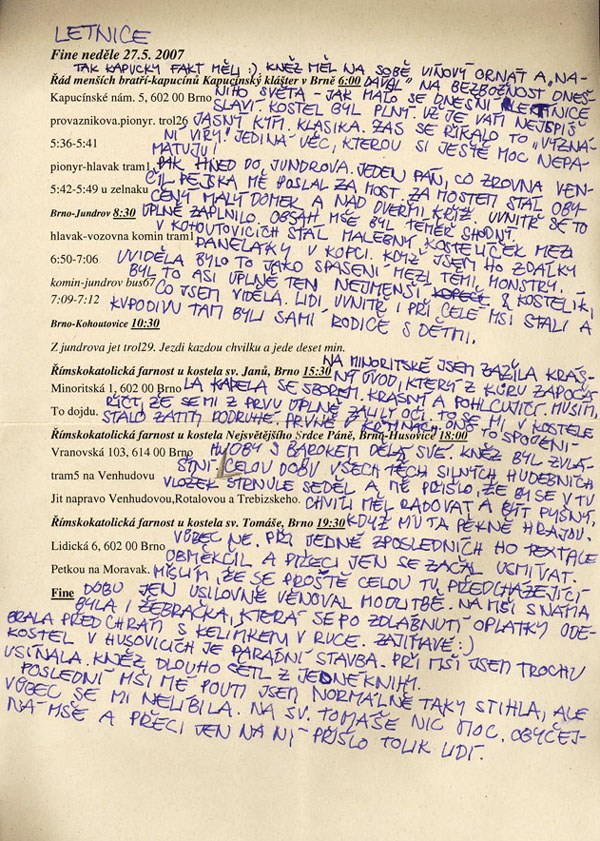 LETNICE
Fine neděle 27.5. 2007
TAK KAPUCKY FAKT MĚLI :) KNĚZ MĚL NA SOBĚ VÍNOVÝ ORNÁT A „NA-
Řád menších bratří-kapucínů Kapucínský klášter v Brně 6:00 DÁVAL" NA BEZBOŽNOST DNEŠ-
Kapucínské nám. 5, 602 00 Brno NÍHO SVĚTA - JAK MÁLO SE DNEŠNÍ LETNICE
SLAVÍ. KOSTEL BYL PLNÝ. UŽ JE VÁM NEJSPÍŠ
provaznikova.pionyr. trol26 JASNÝ KÝM. KLASIKA. ZAS SE ŘÍKALO TO „VYZNÁ-
5:36-5:41 NÍ VÍRY". JEDINÁ VĚC, KTEROU SI JEŠTĚ MOC NEPA-
MATUJU!
pionyr-hlavak tram1 PAK HNED DO JUNDROVA. JEDEN PÁN, CO ZROVNA VEN-
5:42-5:49 u zelnaku ČIL PEJSKA MĚ POSLAL ZA MOST. ZA MOSTEM STÁL OBY-
ČENÝ MALÝ DOMEK A NAD DVEŘMI KŘÍŽ. UVNITŘ SE TO
Brno-Jundrov 8:30 ÚPLNĚ ZAPLNILO. OBSAH MŠE BYL TÉMĚŘ SHODNÝ.
hlavak-vozovna komin tram1 V KOHOUTOVICÍCH STÁL MALEBNÝ KOSTELÍČEK MEZI
PANELÁKY V KOPCI. KDYŽ JSEM HO ZDÁLKY
6:50-7:06 UVIDĚLA BYLO TO JAKO SPASENÍ MEZI TĚMI MONSTRY.
komin-jundrov bus67 BYL TO ASI ÚPLNĚ TEN NEJMENŠÍ KOSTELÍK,
7:09-7:12 CO JSEM VIDĚLA. LIDI UVNITŘ I PŘI CELÉ MŠI STÁLI A
KUPODIVU TAM BYLI SAMÍ RODIČE S DĚTMI.
Brno-Kohoutovice 10:30
Z jundrova jet trol29. Jezdi kazdou chvilku a jede deset min.
NA MINORITSKÉ JSEM ZAŽILA KRÁS-
Římskokatolická farnost u kostela sv. Janů, Brno 15:30 NÝ ÚVOD, KTERÝ Z KŮRU ZAPOČA-
Minoritská 1, 602 00 Brno LA KAPELA SE SBOREM. KRÁSNÝ A POHLCUJÍCÍ. MUSÍM
To dojdu. ŘÍCT, ŽE SE MI Z PRVU ÚPLNĚ ZALILY OČI. TO SE MI V KOSTELE
STALO ZATÍM PODRUHÉ. PRVNĚ V KRTINÁCH. ONO TO SPOJENÍ
Římskokatolická farnost u kostela Nejsvětějšího Srdce Páně, Brno-Husovice 18:00
Vranovská 103, 614 00 Brno HUDBY S BAROKEM DĚLÁ SVÉ. KNĚZ BYL ZVLÁ-
ŠTNÍ. CELOU DOBU VŠECH TĚCH SILNÝCH HUDEBNÍCH
tram5 na Venhudovu VLOŽEK STRNULE SEDĚL A MĚ PŘIŠLO, ŽE BY SE V TU
Jit napravo Venhudovou,Rotalovou a Trebizskeho. CHVÍLI MĚL RADOVAT A BÝT PYŠNÝ,
Římskokatolická farnost u kostela sv. Tomáše, Brno 19:30 KDYŽ MU TA PĚKNĚ HRAJOU.
Lidická 6, 602 00 Brno VŮBEC NE. PŘI JEDNÉ Z POSLEDNÍCH HO TEXTÁCE
OBMĚKČIL A PŘECI JEN SE ZAČAL USMÍVAT.
Petkou na Moravak. MYSLÍM, ŽE SE PROSTĚ CELOU TU PŘEDCHÁZEJÍCÍ
Fine DOBU JEN USILOVNĚ VĚNOVAL MODLITBĚ. NA MŠI S NÁMA
BYLA I ŽEBRAČKA, KTERÁ SE PO ZDLÁBNUTÍ OPLATKY ODE-
BRALA PŘED CHRÁM S KELÍMKEM V RUCE. ZAJÍMAVÉ :)
KOSTEL V HUSOVICÍCH JE PARÁDNÍ STAVBA. PŘI MŠI JSEM TROCHU
USÍNALA. KNĚZ DLOUHO ČETL Z JEDNÉ KNIHY.
POSLEDNÍ MŠI MÉ POUTI JSEM NORMÁLNĚ TAKY STIHLA, ALE
VŮBEC SE MI NELÍBILA. NA SV. TOMÁŠE NIC MOC. OBYČEJ-
NÁ MŠE A PŘECI JEN NA NÍ PŘIŠLO TOLIK LIDÍ.